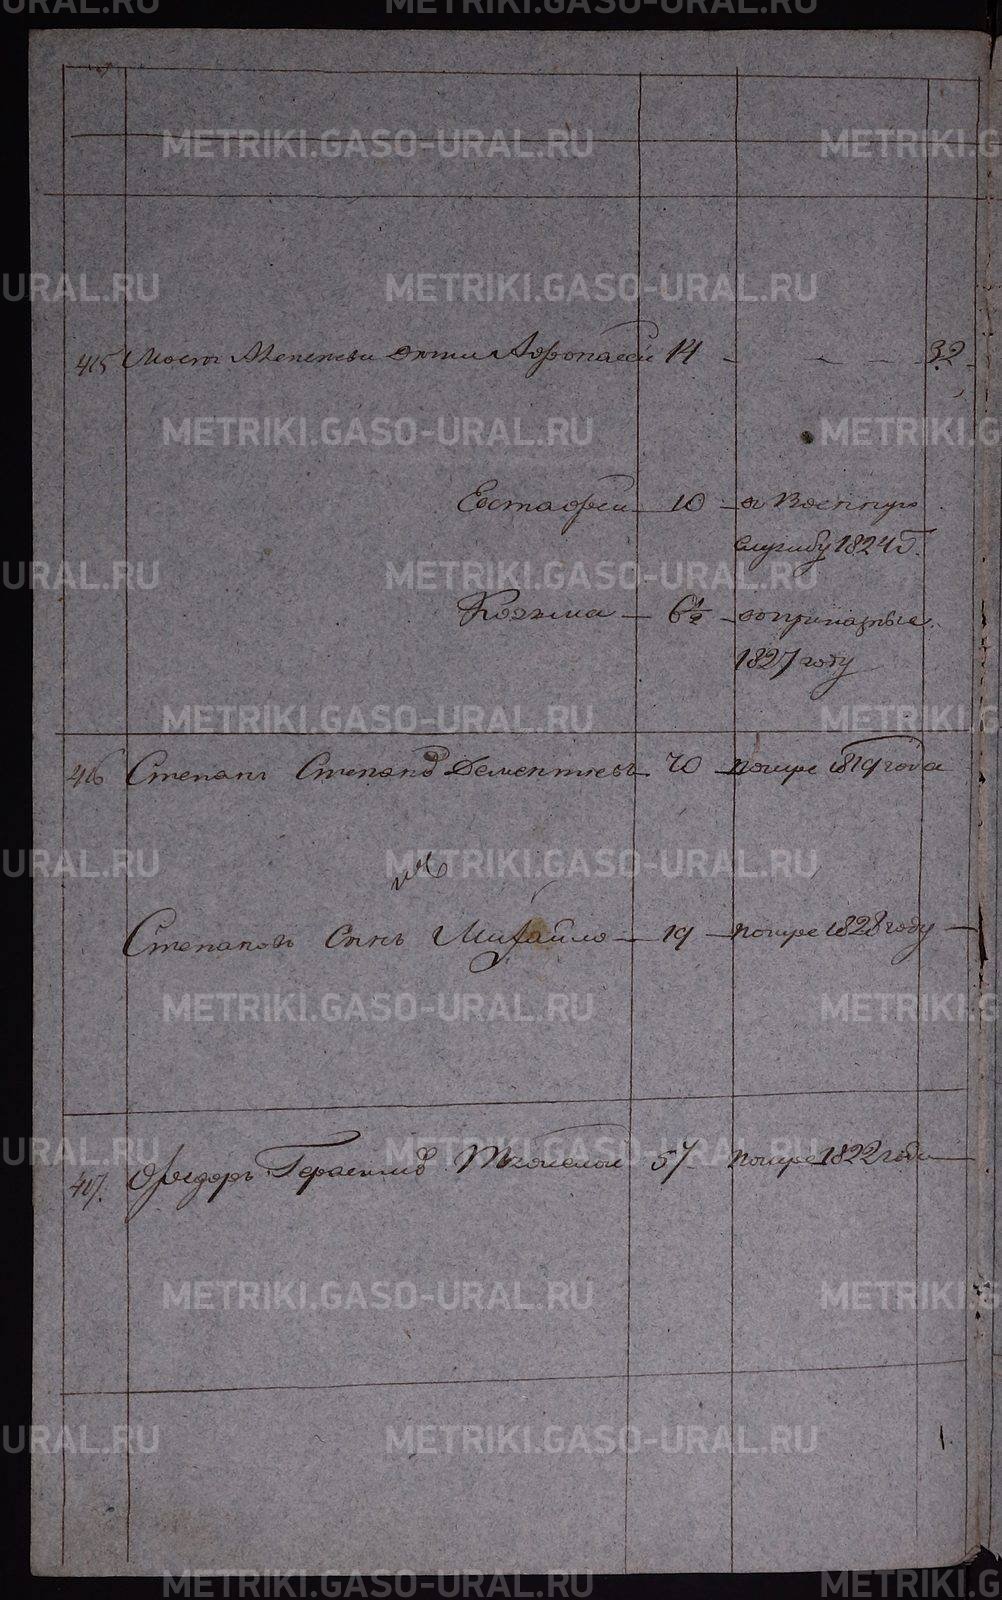 METRIKI.GASO-URAL.RU
415 дети Афонасей 14 32
Евстафей 10 в военную
службу 1824 г.
Козьма 6½ в
1827 году
416 Степанъ Степановъ Дементьевъ 70 помре 1819 года
Степановъ сынъ Михайло 19 помре 1828 году
417. Федоръ Герасимовъ 57 помре 1822 года
1.